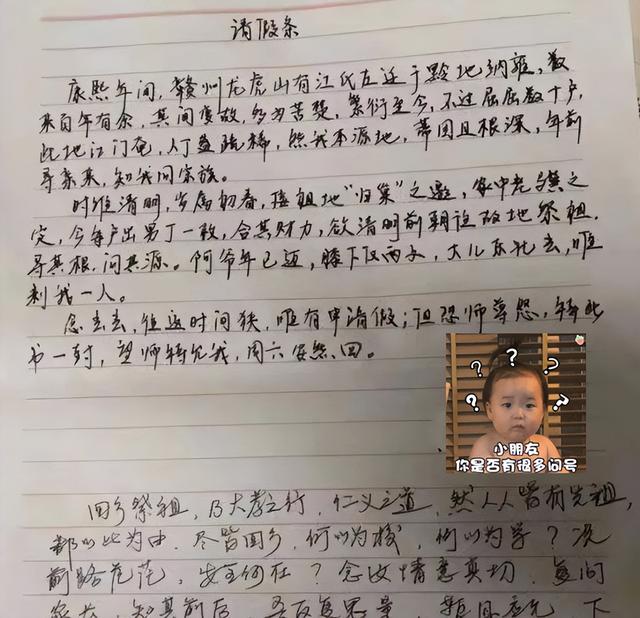 请假条
康熙年间，赣州龙虎山有江氏左迁于黔地纳雍，数
来百年有余，其间变故，多为苦楚，繁衍至今，不过屈屈数十户，
此地江门奄，人丁益疏稀，然我本源地，蒂固且根深，年前
寻亲来，知我同宗族。
时维清明，岁属初春，接祖地“归巢”之邀，家中老
定，今每户出男丁一枚，合其财力，欲清明前朝诣故地祭祖，
寻其根，问其源。阿爷年已迈，膝下仅两
剩我一人。
念去去，往返时间狭，唯有申请假；但恐师尊怨，特此
书一封，望师特允我，周六安然回。
小朋友
你是否有很多问号
回乡祭祖，乃大孝之行，仁义之道，然人人皆有先祖，
都以此为由，尽皆回乡，何以为校，何以为学？况
前路茫茫，安全何在？念汝情意真切，复问
家长，知其前后，吾反复思量，下